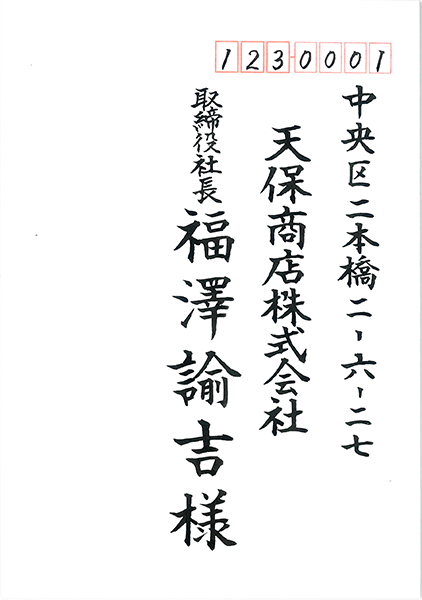 1230001
中央区二本橋二-六-二七
天保商店株式会社
取締役社長 福澤諭吉様